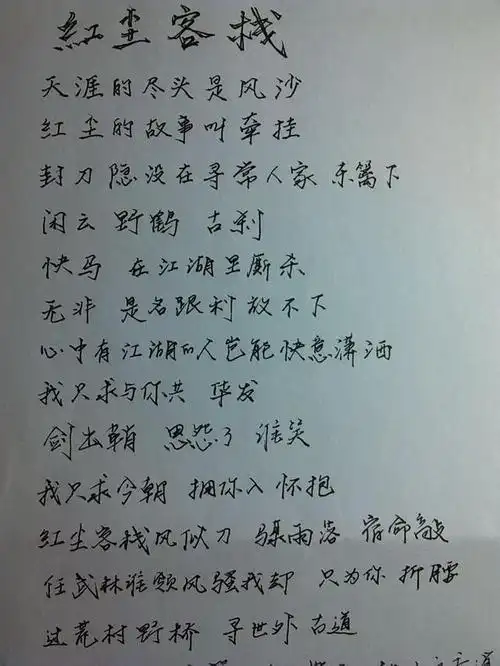 红尘客栈
天涯的尽头是风沙
红尘的故事叫牵挂
封刀隐没在寻常人家 东篱下
闲云 野鹤 古刹
快马 在江湖里厮杀
无非 是名跟利放不下
心中有江湖的人岂能快意潇洒
我只求与你共 华发
剑出鞘 恩怨了 谁笑
我只求今朝 拥你入 怀抱
红尘客栈风似刀 骤雨落 宿命敲
任武林谁领风骚我却 只为你 折腰
过荒村野桥 寻世外 古道